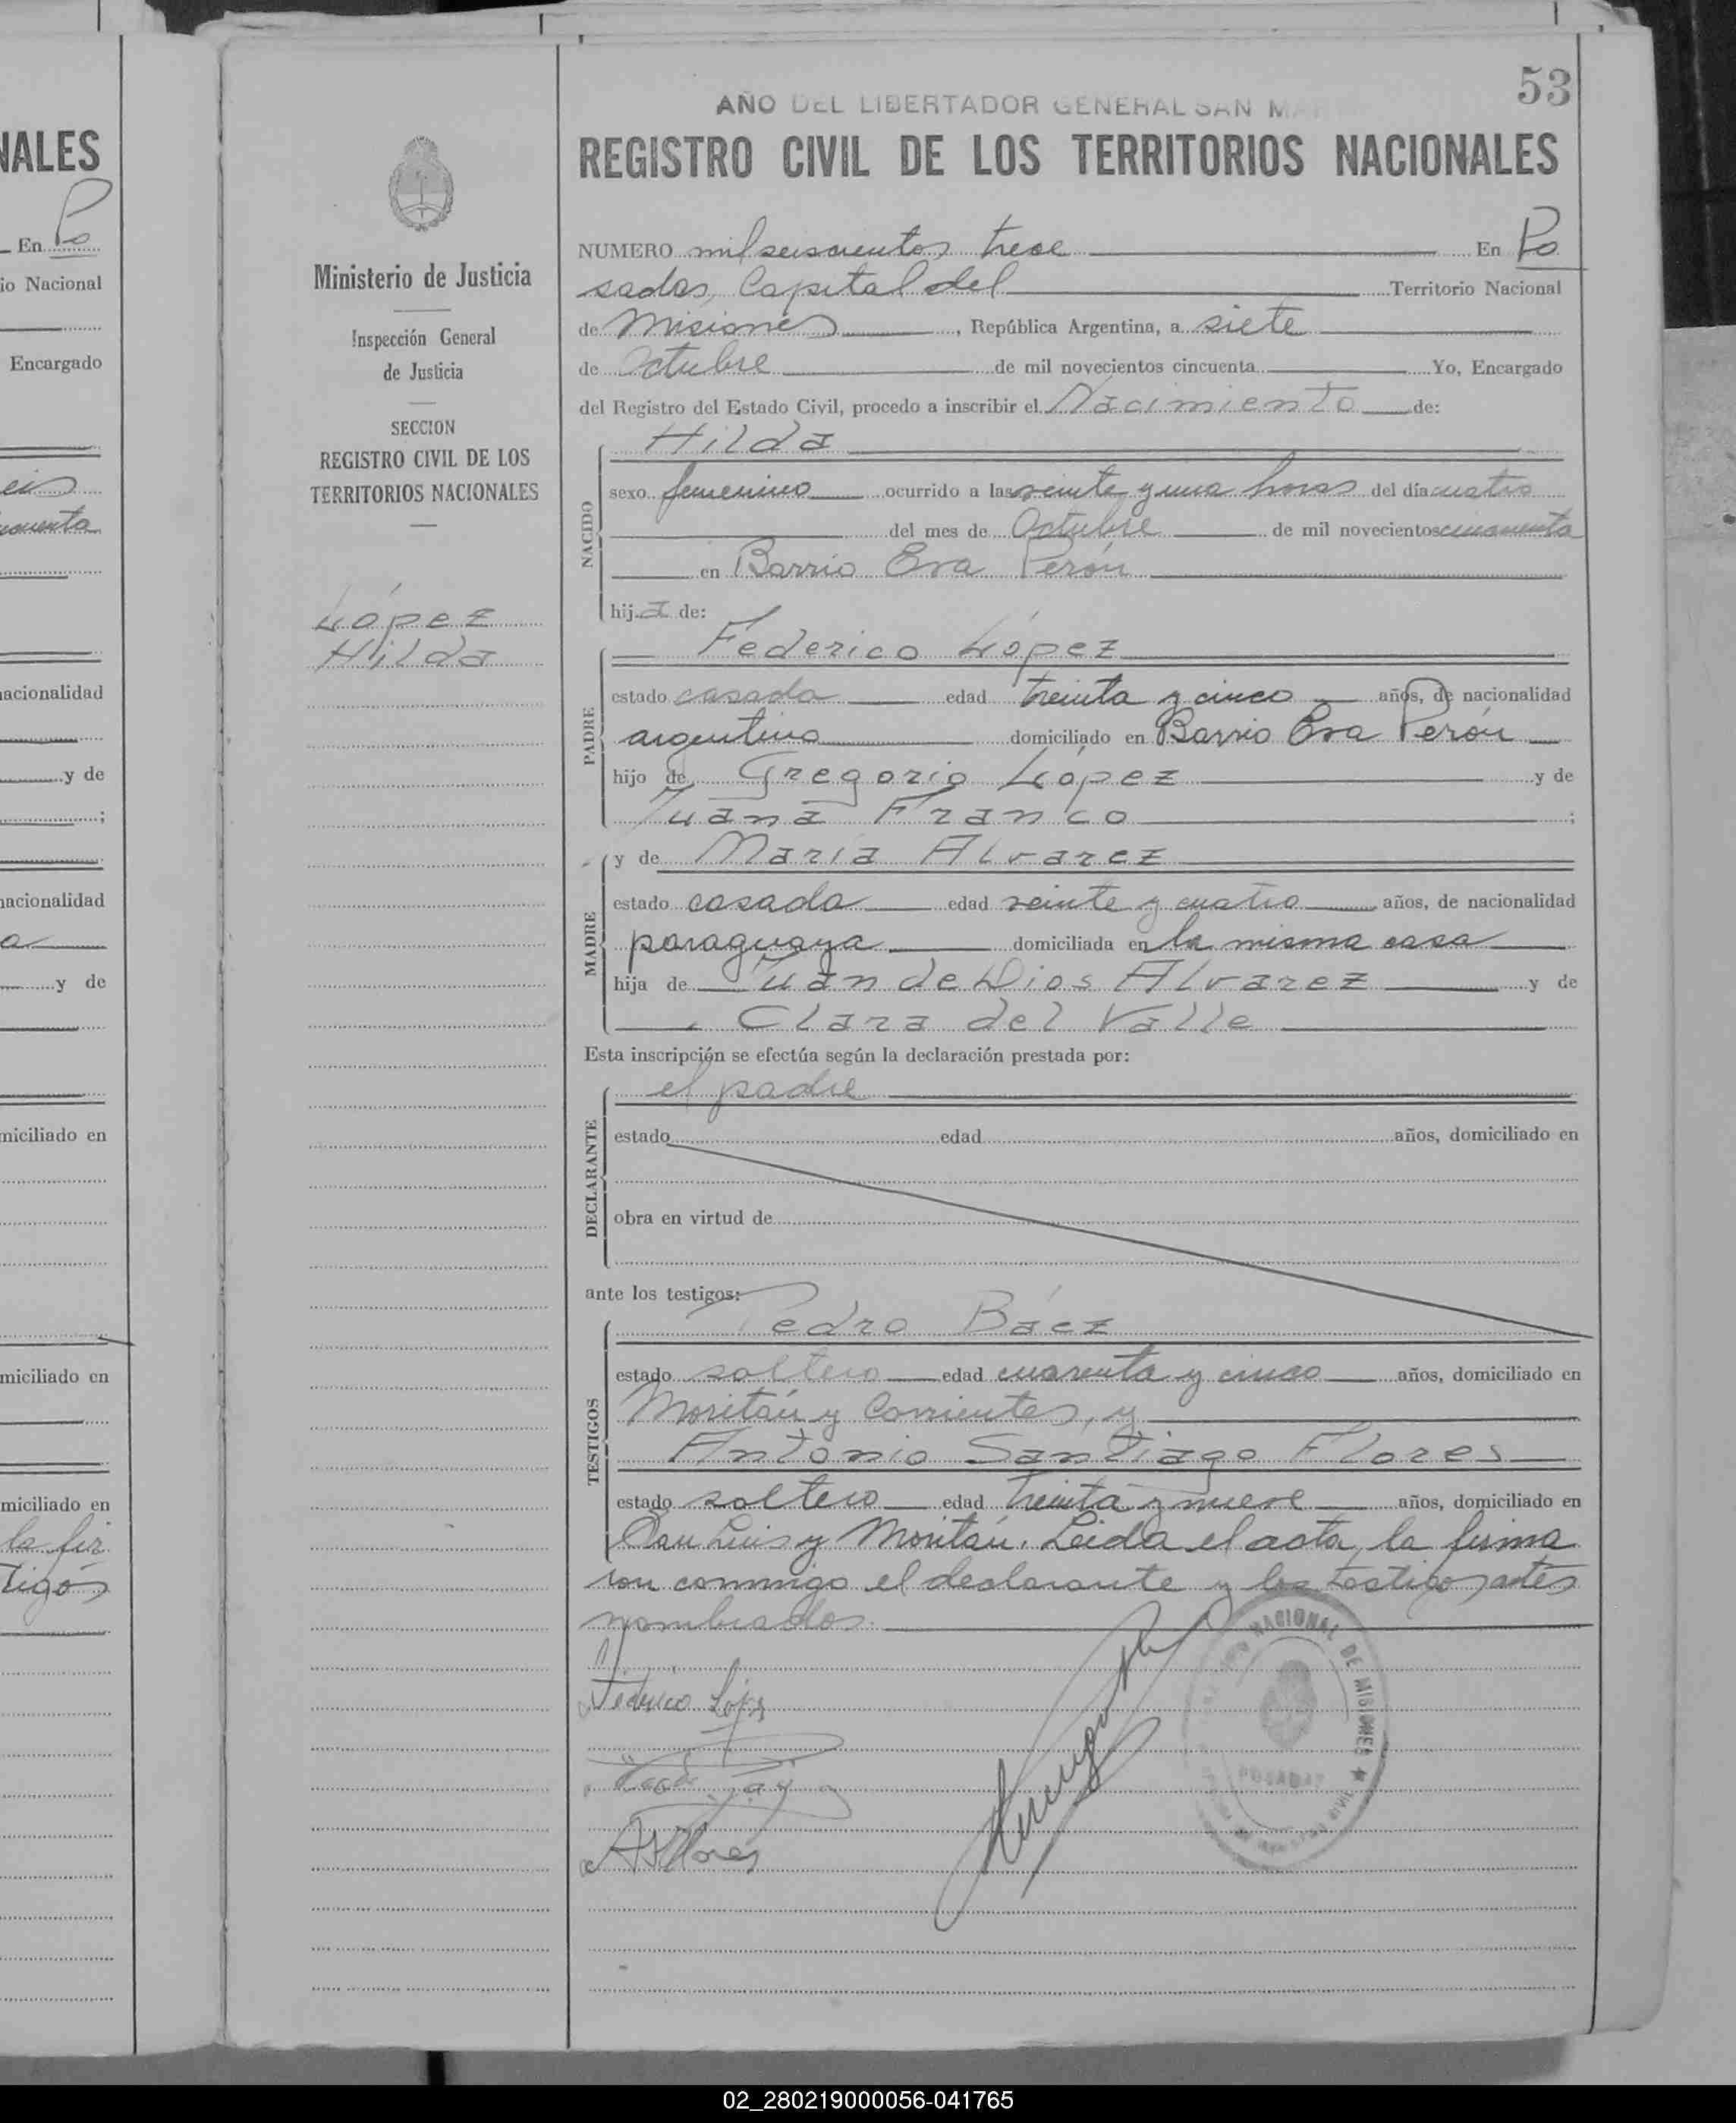 NALES
En Po
io Nacional
Encargado
eis
cuenta
nacionalidad
y de
;
nacionalidad
a
y de
miciliado en
miciliado en
miciliado en
la fir
tigos
Ministerio de Justicia
Inspección General
de Justicia
SECCION
REGISTRO CIVIL DE LOS
TERRITORIOS NACIONALES
López
Hilda
53
AÑO DEL LIBERTADOR GENERAL SAN MA
REGISTRO CIVIL DE LOS TERRITORIOS NACIONALES
NUMERO mil seiscientos trece En Po
sadas, Capital del Territorio Nacional
de Misiones, República Argentina, a siete
de Octubre de mil novecientos cincuenta Yo, Encargado
del Registro del Estado Civil, procedo a inscribir el Nacimiento de:
NACIDO
Hilda
sexo femenino ocurrido a las veinte y una horas del día cuatro
del mes de Octubre de mil novecientos cincuenta
en Barrio Eva Perón
hija de:
PADRE
Federico López
estado casado edad treinta y cinco años, de nacionalidad
argentino domiciliado en Barrio Eva Perón
hijo de Gregorio López y de
Juana Franco ;
MADRE
y de María Alvarez
estado casada edad veinte y cuatro años, de nacionalidad
paraguaya domiciliada en la misma casa
hija de Juan de Dios Alvarez y de
Clara del Valle
Esta inscripción se efectúa según la declaración prestada por:
DECLARANTE
el padre
estado edad años, domiciliado en
obra en virtud de
ante los testigos:
TESTIGOS
Pedro Báez
estado soltero edad cuarenta y cinco años, domiciliado en
Moritán y Corrientes, y
Antonio Santiago Flores
estado soltero edad treinta y nueve años, domiciliado en
San Luis y Moritán. Leida el acta, la firma
ron conmigo el declarante y los testigos antes
nombrados.
Federico López
ASFlores
NACIONAL DE MISIONES
POSADAS
02_280219000056-041765